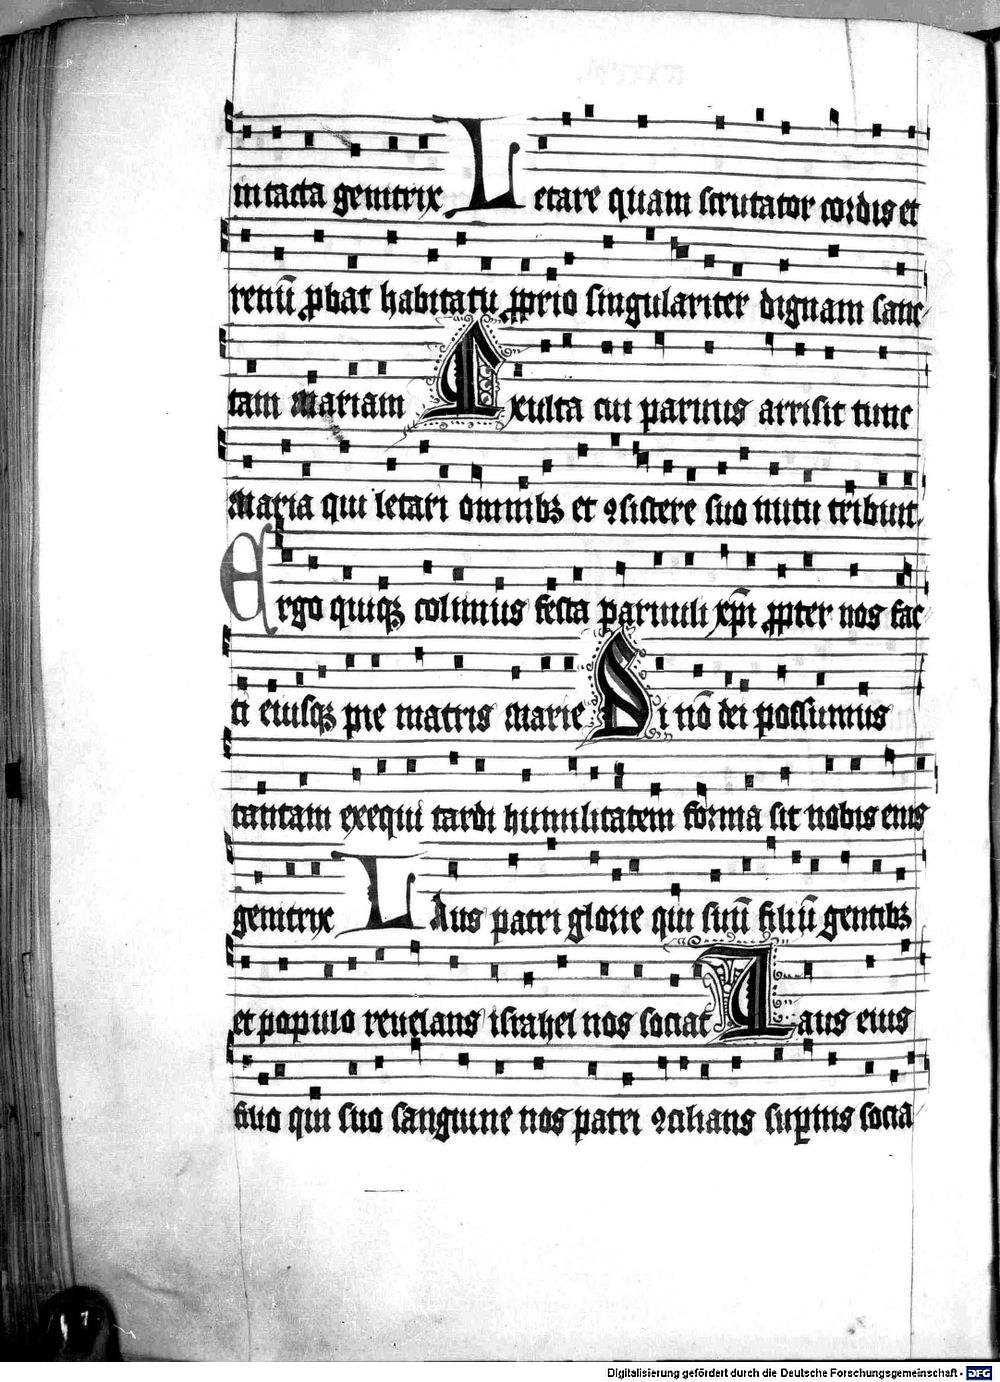 intacta genitrix Letare quam scrutator cordis et
renū ꝓbat habitatu ꝓprio singulariter dignam sanc-
tam mariam Exulta cui paruus arrisit tunc
maria qui letari omnibꝫ et ꝯsistere suo nutu tribuit.
Ergo quiqꝫ colimus festa paruuli xp̄i ꝓpter nos fac-
ti eiusqꝫ pie matris marie Si nō dei possumus
tantam exequi tardi humilitatem forma sit nobis eius
genitrix LAus patri glorie qui suū filiū gentibꝫ
et populo reuelans israhel nos sociat Laus eius
filio qui suo sanguine nos patri ꝯcilians supius socia-
Digitalisierung gefördert durch die Deutsche Forschungsgemeinschaft - DFG